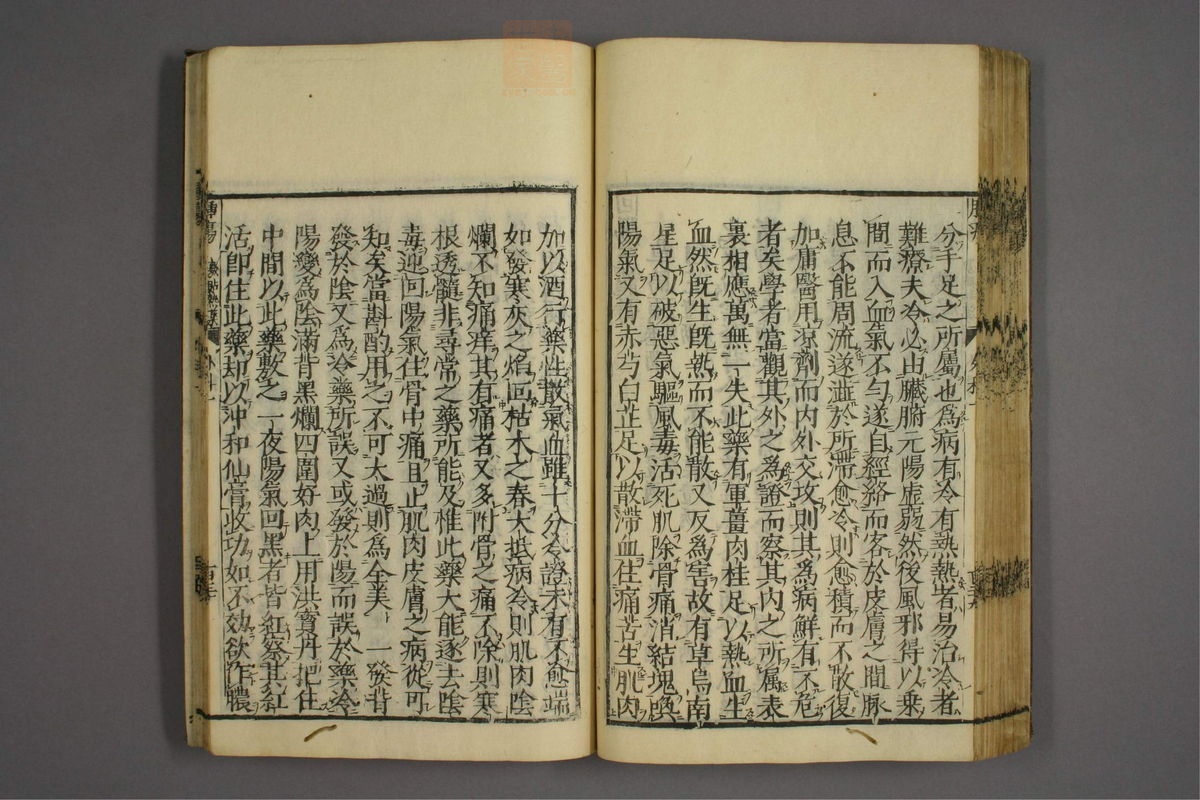 分手足之所屬也爲病有冷有熱熱者易治冷者
難療夫冷必由臟腑元陽虛弱然後風邪得以乗
間而入血氣不勻遂自經絡而客於皮膚之間脉
息不能周流遂澁於所滯愈冷則愈積而不散復
加庸醫用凉劑而内外交攻則其爲病鮮有不危
者矣學者當觀其外之爲證而察其内之所属表
裏相應萬無一失此藥有軍薑肉桂足以熱血生
血然既生既熱而不能散又反爲害故有草烏南
星足以破惡氣驅風毒活死肌除骨痛消結塊喚
陽氣又有赤芍白芷足以散滯血住痛苦生肌肉
加以酒行藥性散氣血雖十分冷證未有不愈端
如發寒灰之焰回枯木之春大抵病冷則肌肉陰
爛不知痛痒其有痛者又多附骨之痛不除則寒
根透髓非尋常之藥所能及惟此藥大能逐去陰
毒迎回陽氣住骨中痛且止肌肉皮膚之病從可
知矣當斟酌用之不可太過則爲全美 一發背
發於陰又爲冷藥所誤又或發於陽而誤於藥冷
陽變爲陰滿背黑爛四圍好肉上用洪寳丹把住
中間以此藥敷之一夜陽氣回黑者皆紅察其紅
活即住此藥却以沖和仙膏收功如不効欲作膿